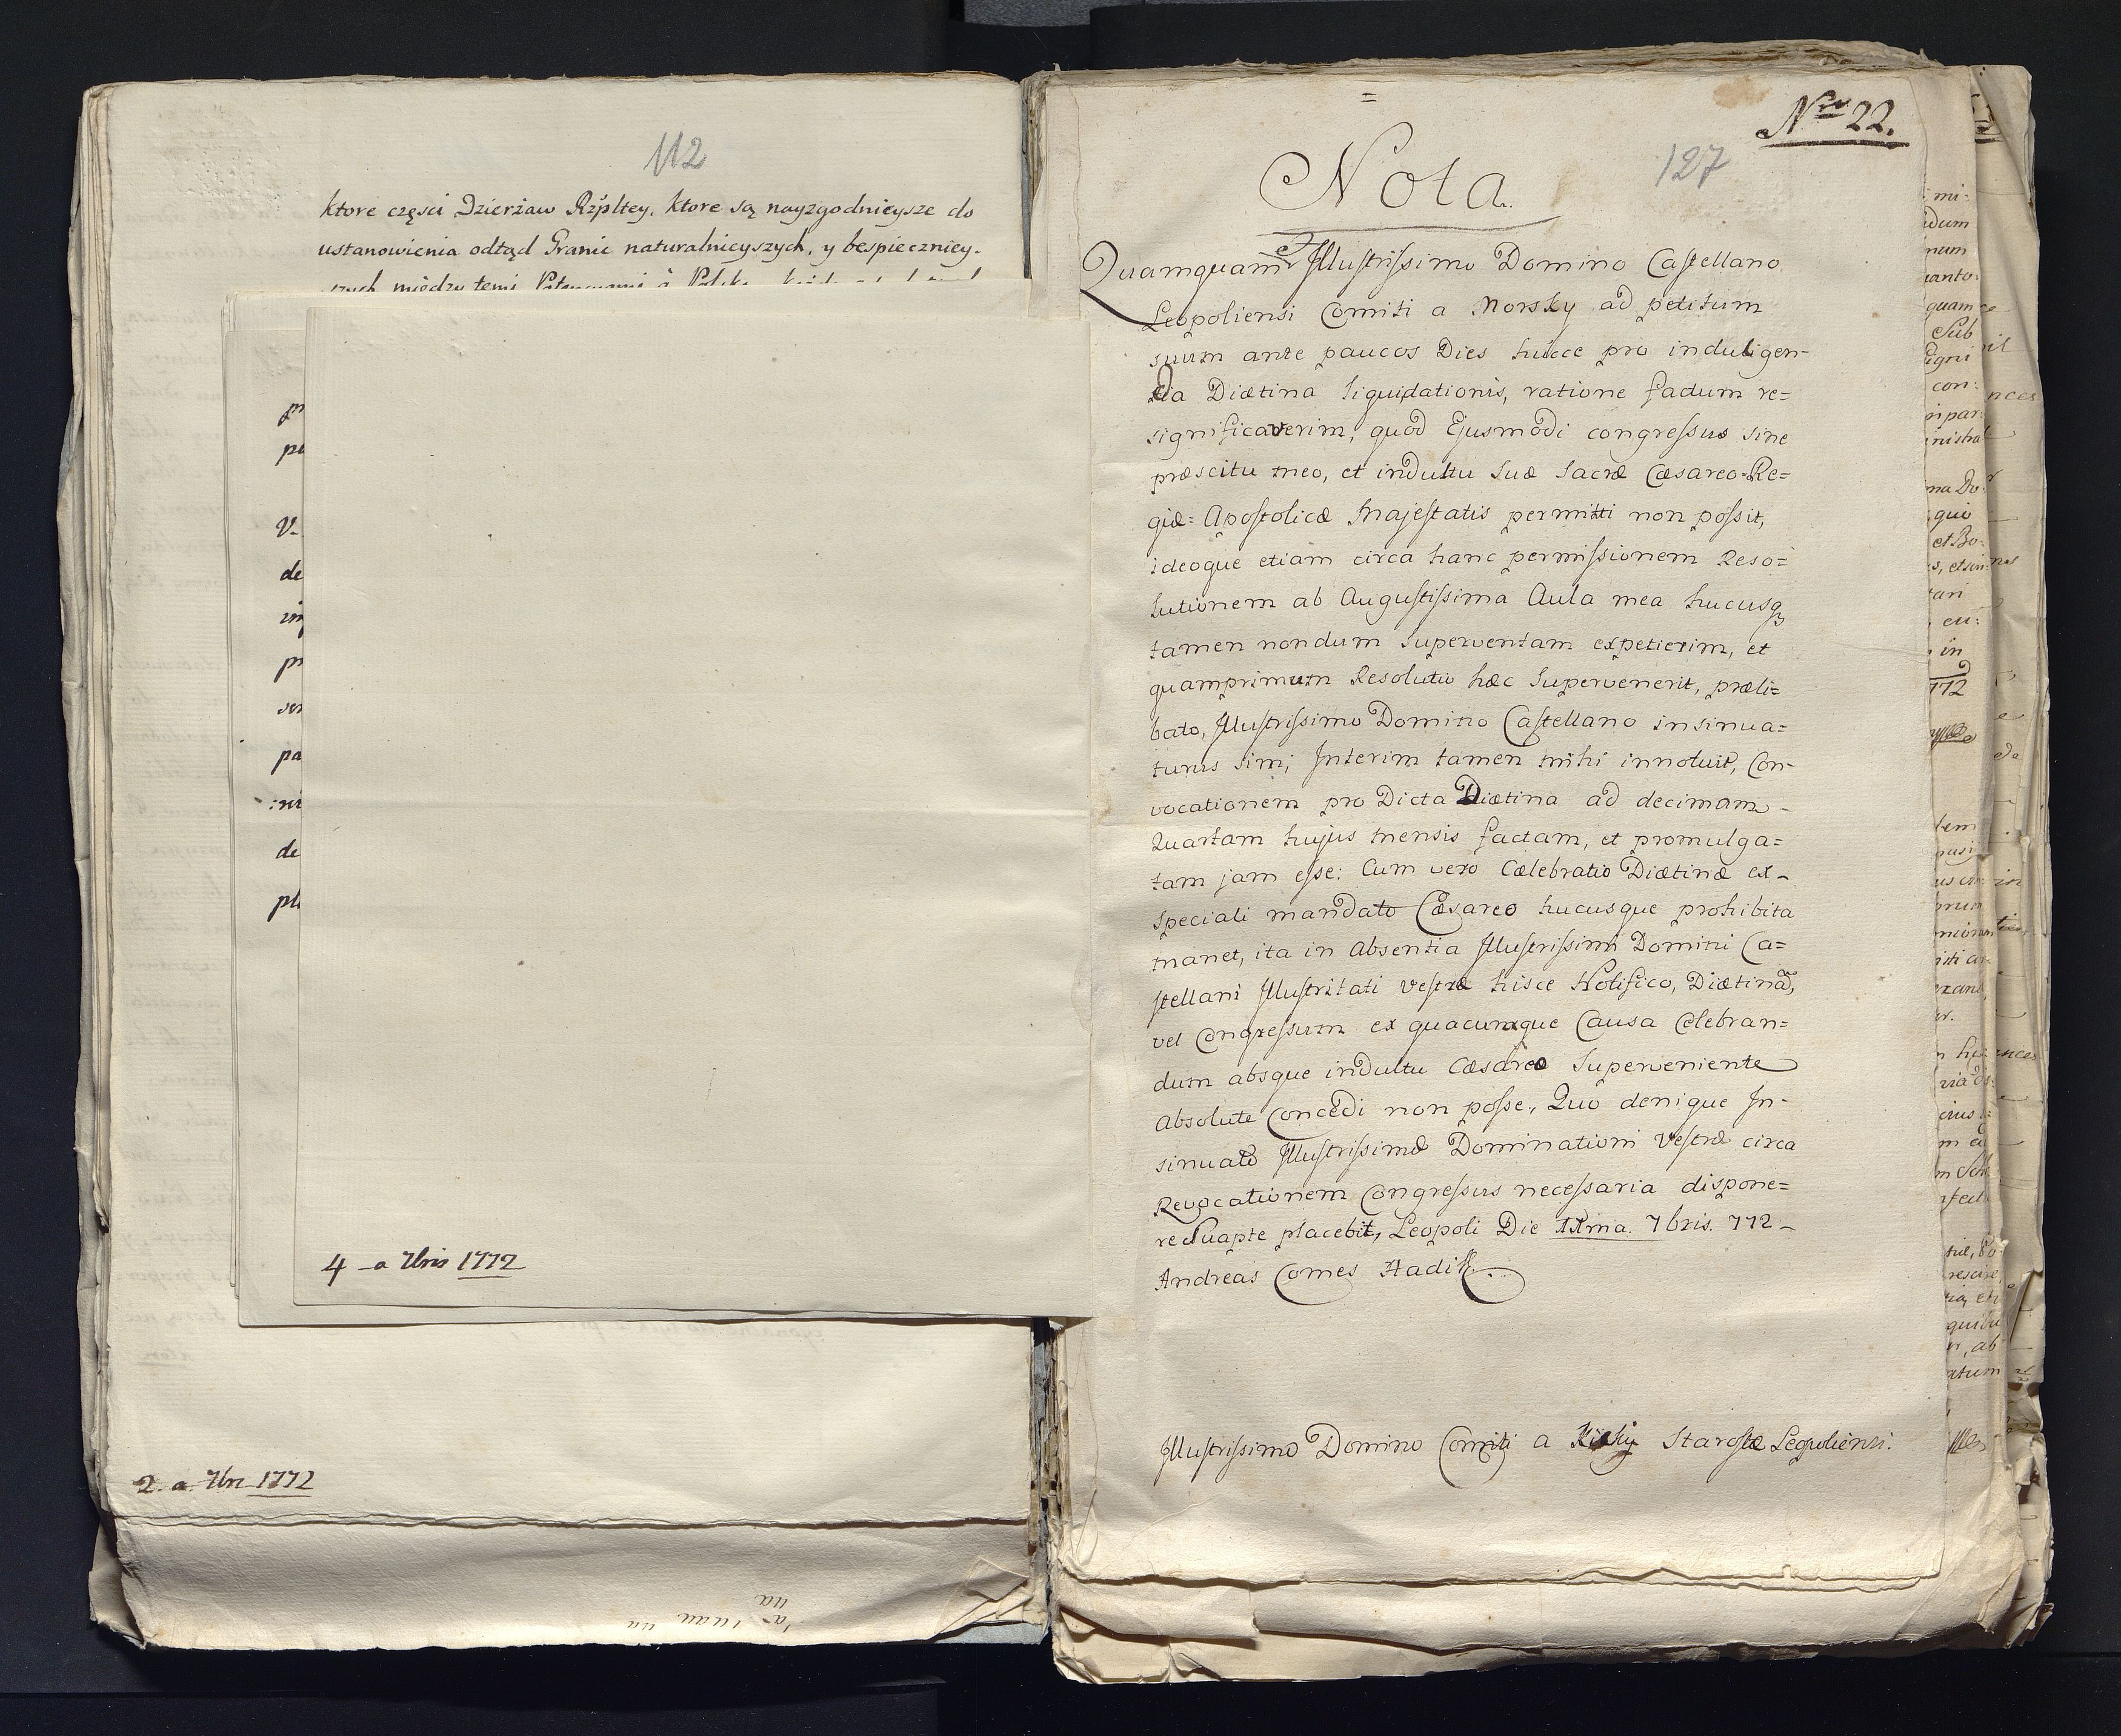 112
ktore częsci Dzierżaw Rzpltey, ktore są nayzgodnieysze do
ustanowienia odtąd Granic naturalnieyszych, y bespieczniey-
szych między temi
pr
po
V.
de
im
pr
ser
pa
de
pla
4 a 7bris 1772
2. a. 7bri 1772
Nro 22.
127
Nota
Quamquam et Jllustrissimo Domino Castellano
Leopoliensi Comiti a Morsky ad petitum
suum ante paucos Dies hicce pro induligen-
da Diætina liquidationis, ratione factum re=
significaverim, quod Ejusmodi congressus sine
præscitu meo, et indultu Suæ Sacræ Cæsareo-Re=
giæ= Apostolicæ Majestatis permitti non possit,
ideoque etiam circa hanc permissionem Reso=
lutionem ab Augustissima Aula mea hucusq
tamen nondum superventam expetierim, et
quamprimum Resolutio hæc supervenerit, præli=
bato, Jllustrissimo Domino Castellano insinua=
turus sim; Jnterim tamen mihi innotuit, Con-
vocationem pro Dicta Diætina ad decimam-
Quartam hujus mensis factam, et promulga=
tam jam esse: Cum vero Cælebratio Diætinæ ex-
speciali mandato Cæsareo hucusque prohibita
manet, ita in Absentia Jllustrissimi Domini Ca=
stellani Jllustritati vestræ hisce Notifico, Diætinã,
vel Congressum ex quacunque Causa Celebran=
dum absque indultu Cæsareo Superveniente
Absolute Concedi non posse, Quo denique Jn-
sinuato Jllustrissimæ Dominationi Vestræ circa
Revocationem Congressus necessaria dispone=
re suapte placebit, Leopoli Die 7bris. 772-
Andreas Comes Hadik.
Jllustrissimo Domino Comiti a Kicky Starostæ Leopoliensi.